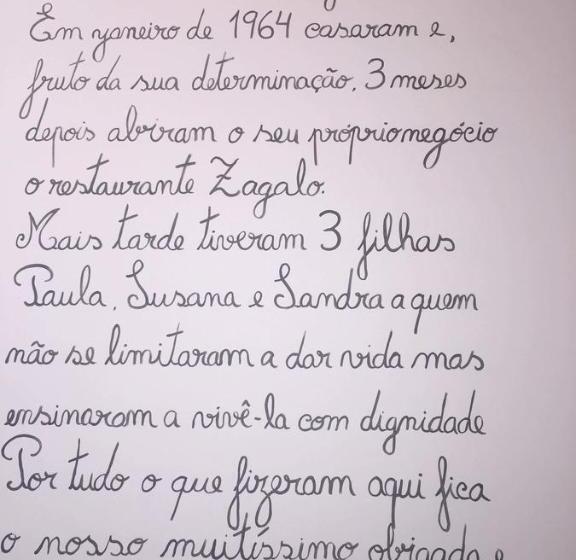 Em yaneiro de 1964 casaram e,
fruto da sua determinação, 3 meses
depois abriram o seu próprio negócio
o restaurante Zagalo.
Mais tarde tiveram 3 filhas
Paula, Susana e Sandra a quem
não se limitaram a dar vida mas
ensinaram a vivê-la com dignidade
Por tudo o que fizeram aqui fica
o nosso muitíssimo obrigado e